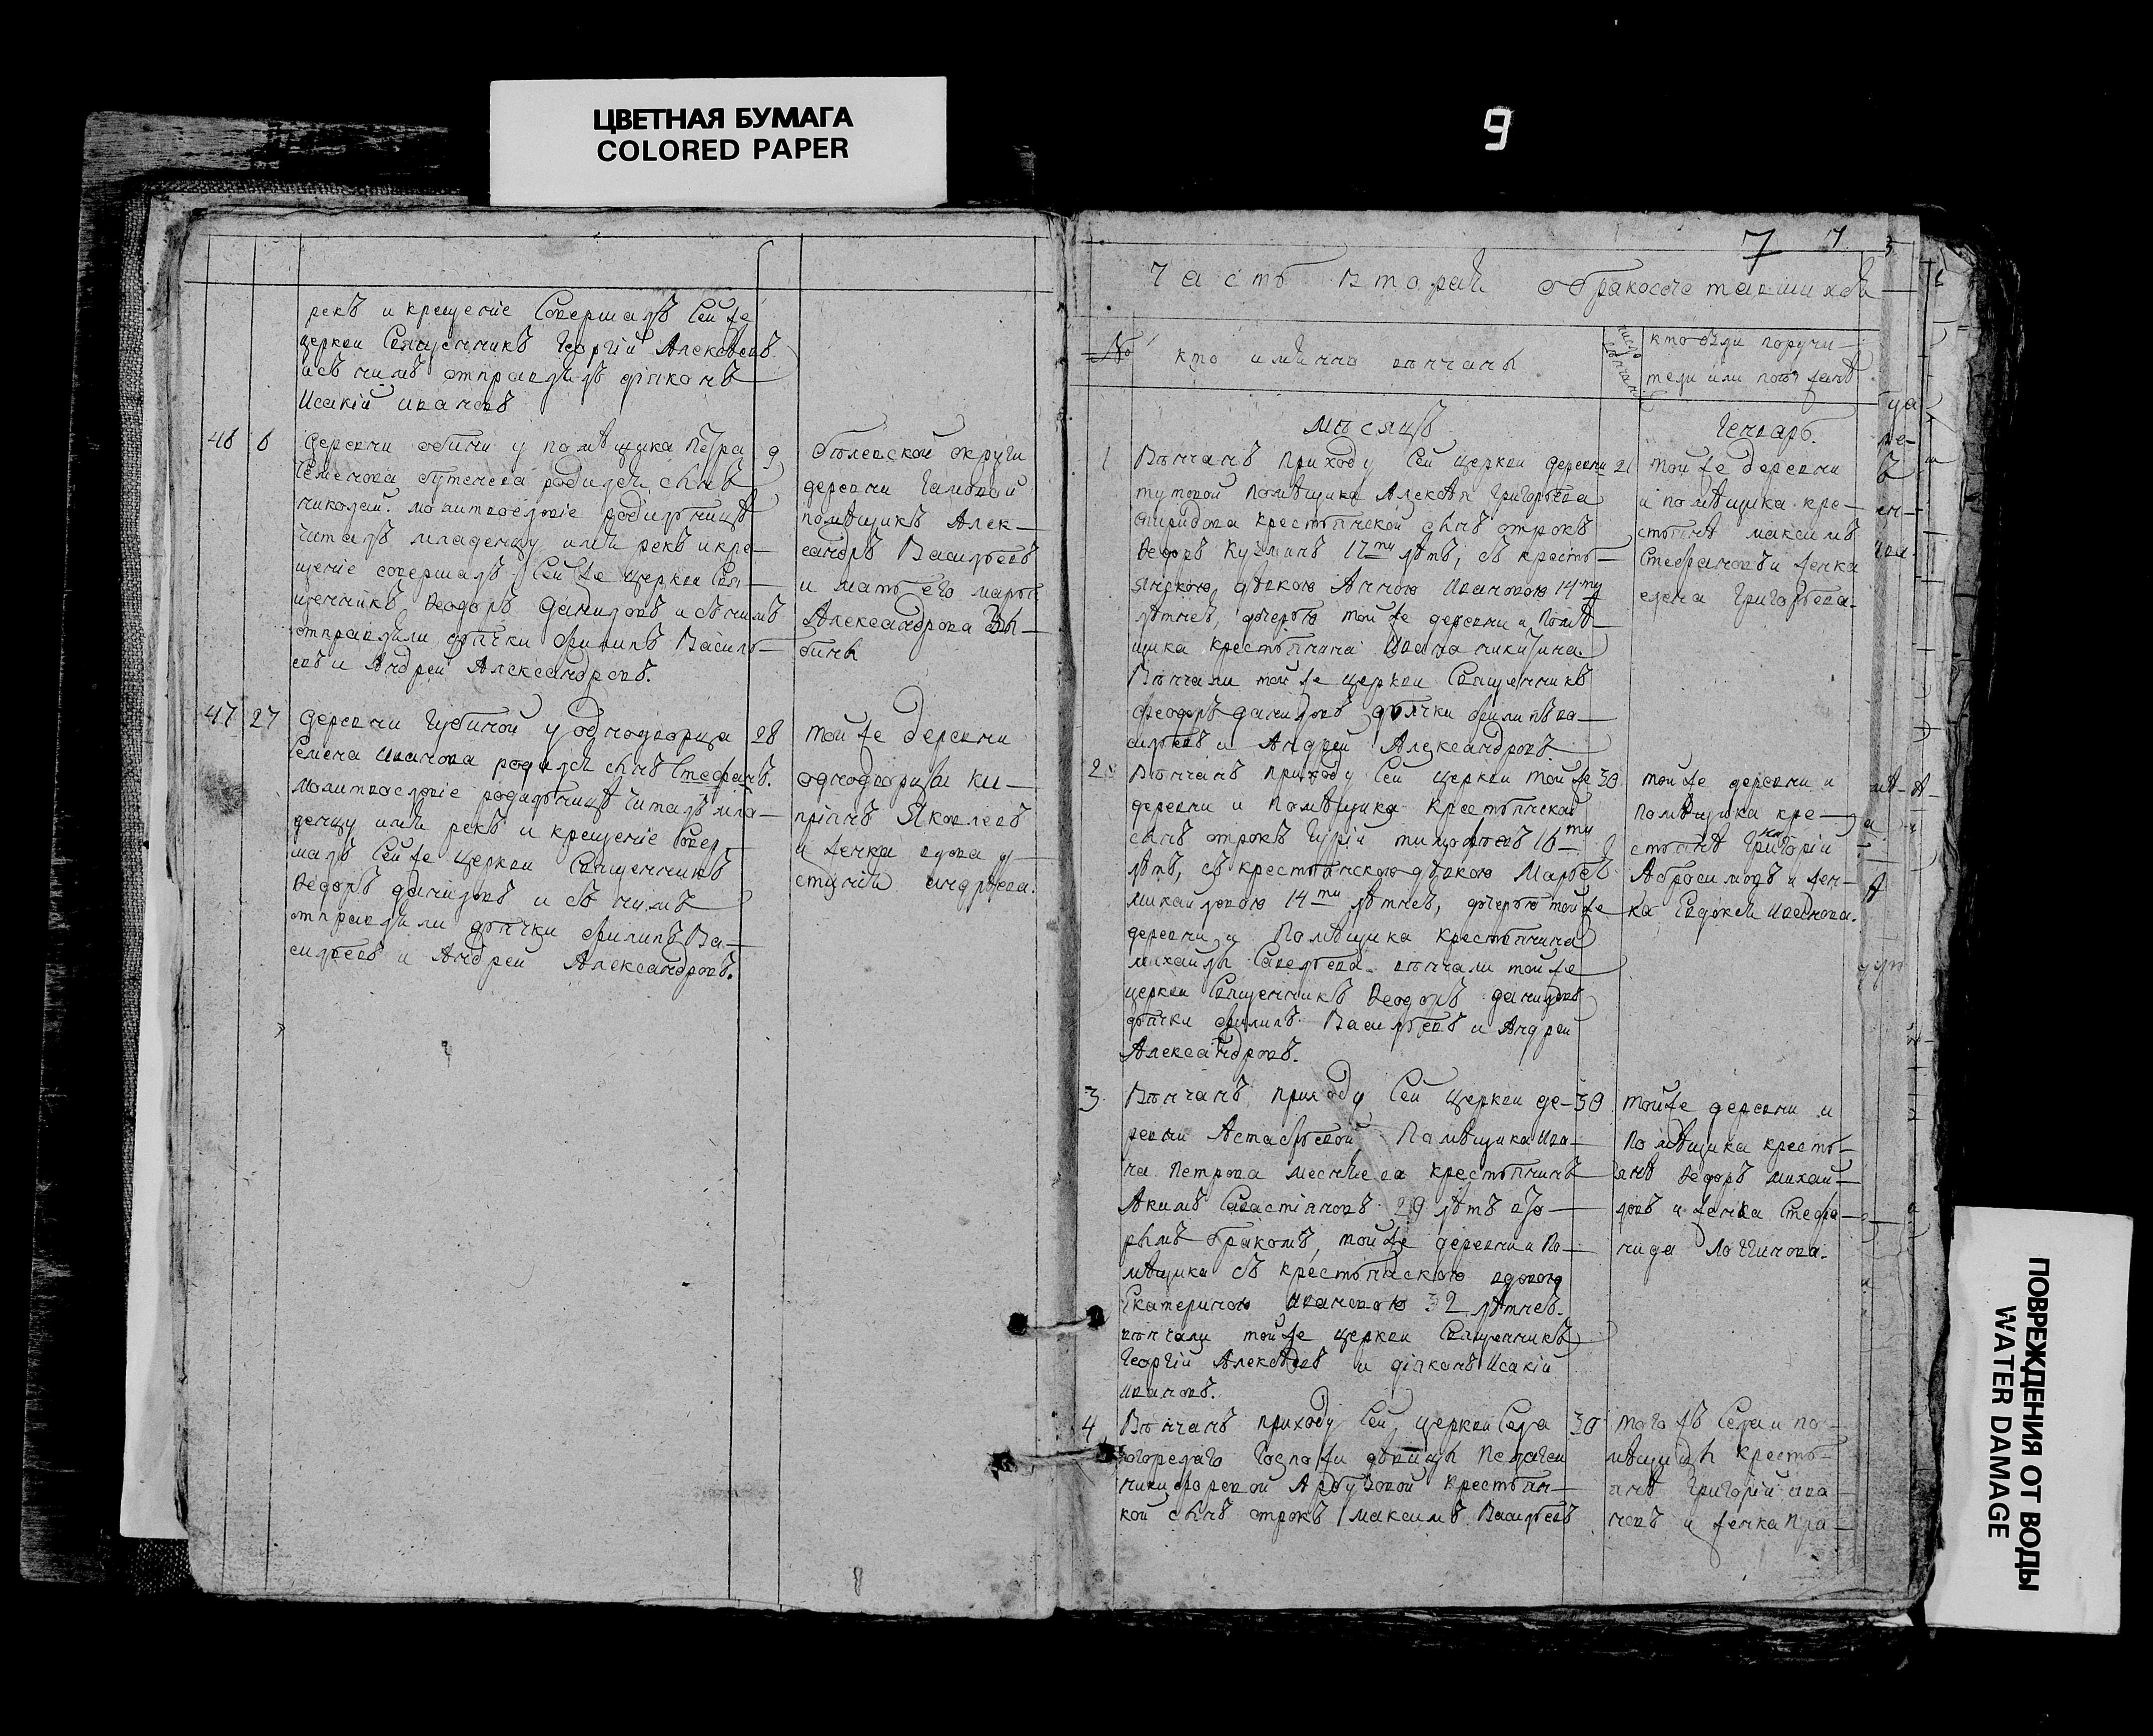 ЦВЕТНАЯ БУМАГА
COLORED PAPER
9
рекъ и крещеніе Совершалъ Сей же
церкви Священникъ Георгій Алексѣевъ
и съ нимъ отправлялъ діяконъ
Исакій Ивановъ
46 6
деревни у помѣщика Петра 9
Семенова родился сынъ
николай. молитвословіе родильницѣ
читалъ младенцу имя рекъ и кре-
щеніе совершалъ Сей же церкви Свя-
щенникъ Ѳеодоръ Даниловъ и съ нимъ
отправляли дьячки Филипъ Василь-
евъ и Андрей Александровъ.
округи
деревни
помѣщикъ Алек-
сандръ Васильевъ
и мать его марья
Александрова Зы-
бины
47 27 деревни Губиной у однодворца 28
Семена Иванова родился сынъ Стефанъ.
молитвословіе родильницѣ читалъ мла-
денцу имя рекъ и крещеніе Совер-
шалъ Сей же церкви Священникъ
Ѳедоръ Даниловъ и съ нимъ
отправляли дьячки Филипъ Ва-
сильевъ и Андрей Александровъ.
той же деревни
однодворцы Ки-
пріянъ Яковлевъ
и женка вдова у-
стинія андреева.
7 7
часть вторая о бракосочетавшихся
№ кто имянно вѣнчаны
кто были поручи-
тели или поѣзжанѣ
мѣсяцъ Генварь.
1 Вѣнчанъ приходу Сей церкви деревни 21
помѣщика Алексѣя Григорьева
Спиридова крестьянской сынъ отрокъ
Ѳедоръ Кузминъ 17ти лѣтъ, съ кресть-
янскою дѣвкою Анною Ивановою 14ти
лѣтнею, дочерью той же деревни и помѣ-
щика крестьянина Ивана никитина
Вѣнчали той же церкви Священникъ
Феодоръ Даниловъ дьячки Филипъ ва-
сильевъ и Андрей Александровъ
той же деревни
и помѣщика кре-
стьянѣ максимъ
Стефановъ и женка
елена Григорьева.
2 Вѣнчанъ приходу Сей церкви той же 30
деревни и помѣщика крестьянской
сынъ отрокъ Гурій тимофѣевъ 16ти
лѣтъ, съ крестьянскою дѣвкою Марьею
михайловою 14ти лѣтнею, дочерью той же
деревни и помѣщика крестьянина
михайлы Савельева вѣнчали той же
церкви Священникъ Ѳеодоръ Даниловъ
дьячки Филипъ Васильевъ и Андрей
Александровъ.
той же деревни и
помѣщика кре-
стьянѣ Григорій
Абросимовъ и жен-
ка Евдокея Иванова.
3 Вѣнчанъ приходу Сей церкви де- 30
ревни Астафьевой помѣщика Ива-
на Петрова крестьянинъ
Акимъ Савастіяновъ 29 лѣтъ вто-
рымъ бракомъ, той же деревни и по-
мѣщика съ крестьянскою вдовою
Екатериною Ивановою 32 лѣтнею.
вѣнчали той же церкви Священникъ
Георгій Алексѣевъ и діяконъ Исакій
Ивановъ.
той же деревни и
помѣщика кресть-
янѣ Ѳедоръ михай-
ловъ и женка Стефа-
нида Логгинова.
4 Вѣнчанъ приходу Сей церкви Села 30
Госпожи дѣвицы Пелагеи
никифоровой Арбузовой крестьян-
кой сынъ отрокъ максимъ Васильевъ
того жъ Села и по-
мѣщицы кресть-
янѣ Григорій ива-
новъ и женка Пра-
ПОВРЕЖДЕНИЯ ОТ ВОДЫ
WATER DAMAGE